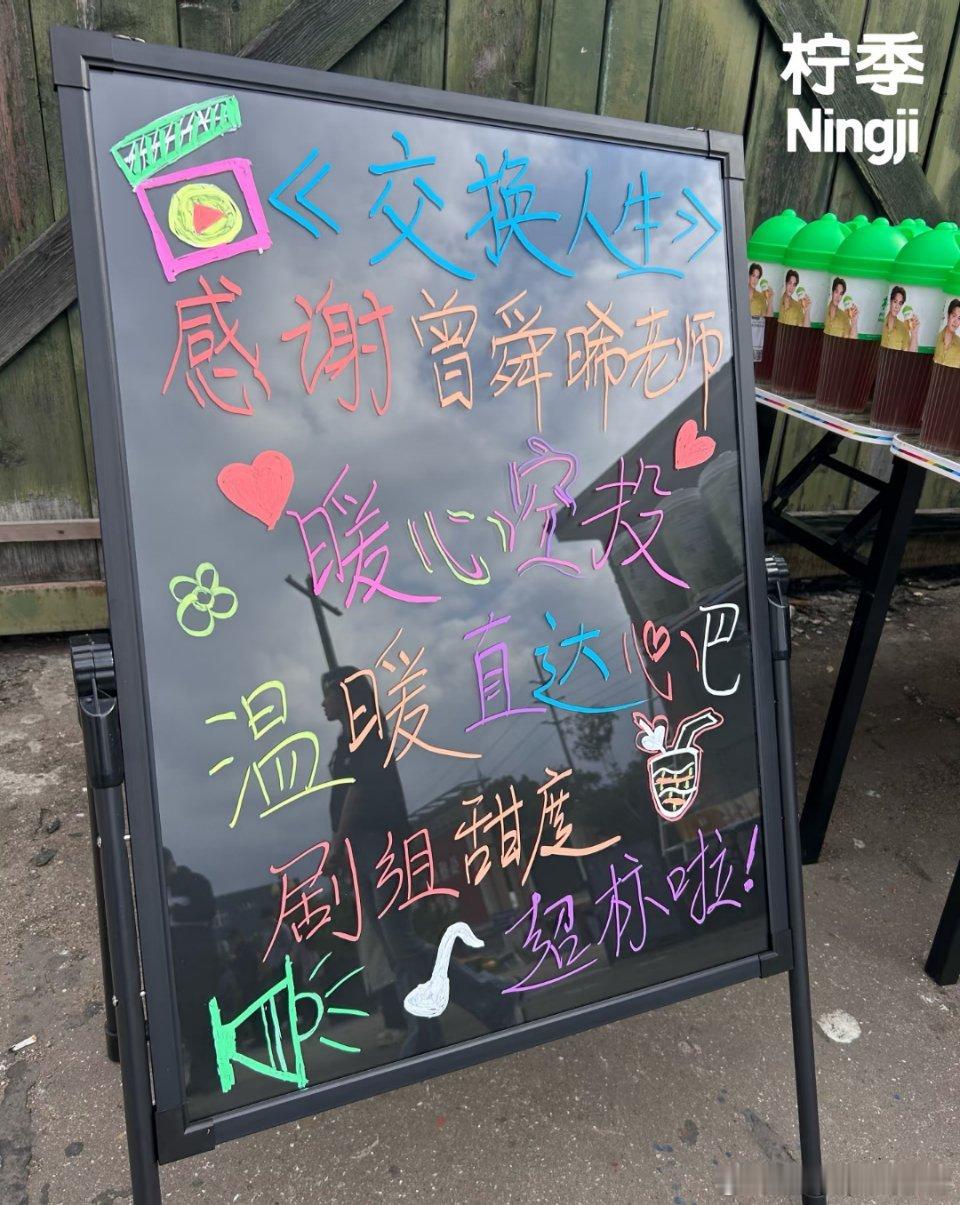 柠季
Ningji
《交换人生》
感谢曾舜晞老师
暖心空投
温暖直达心巴
剧组甜度
超标啦!